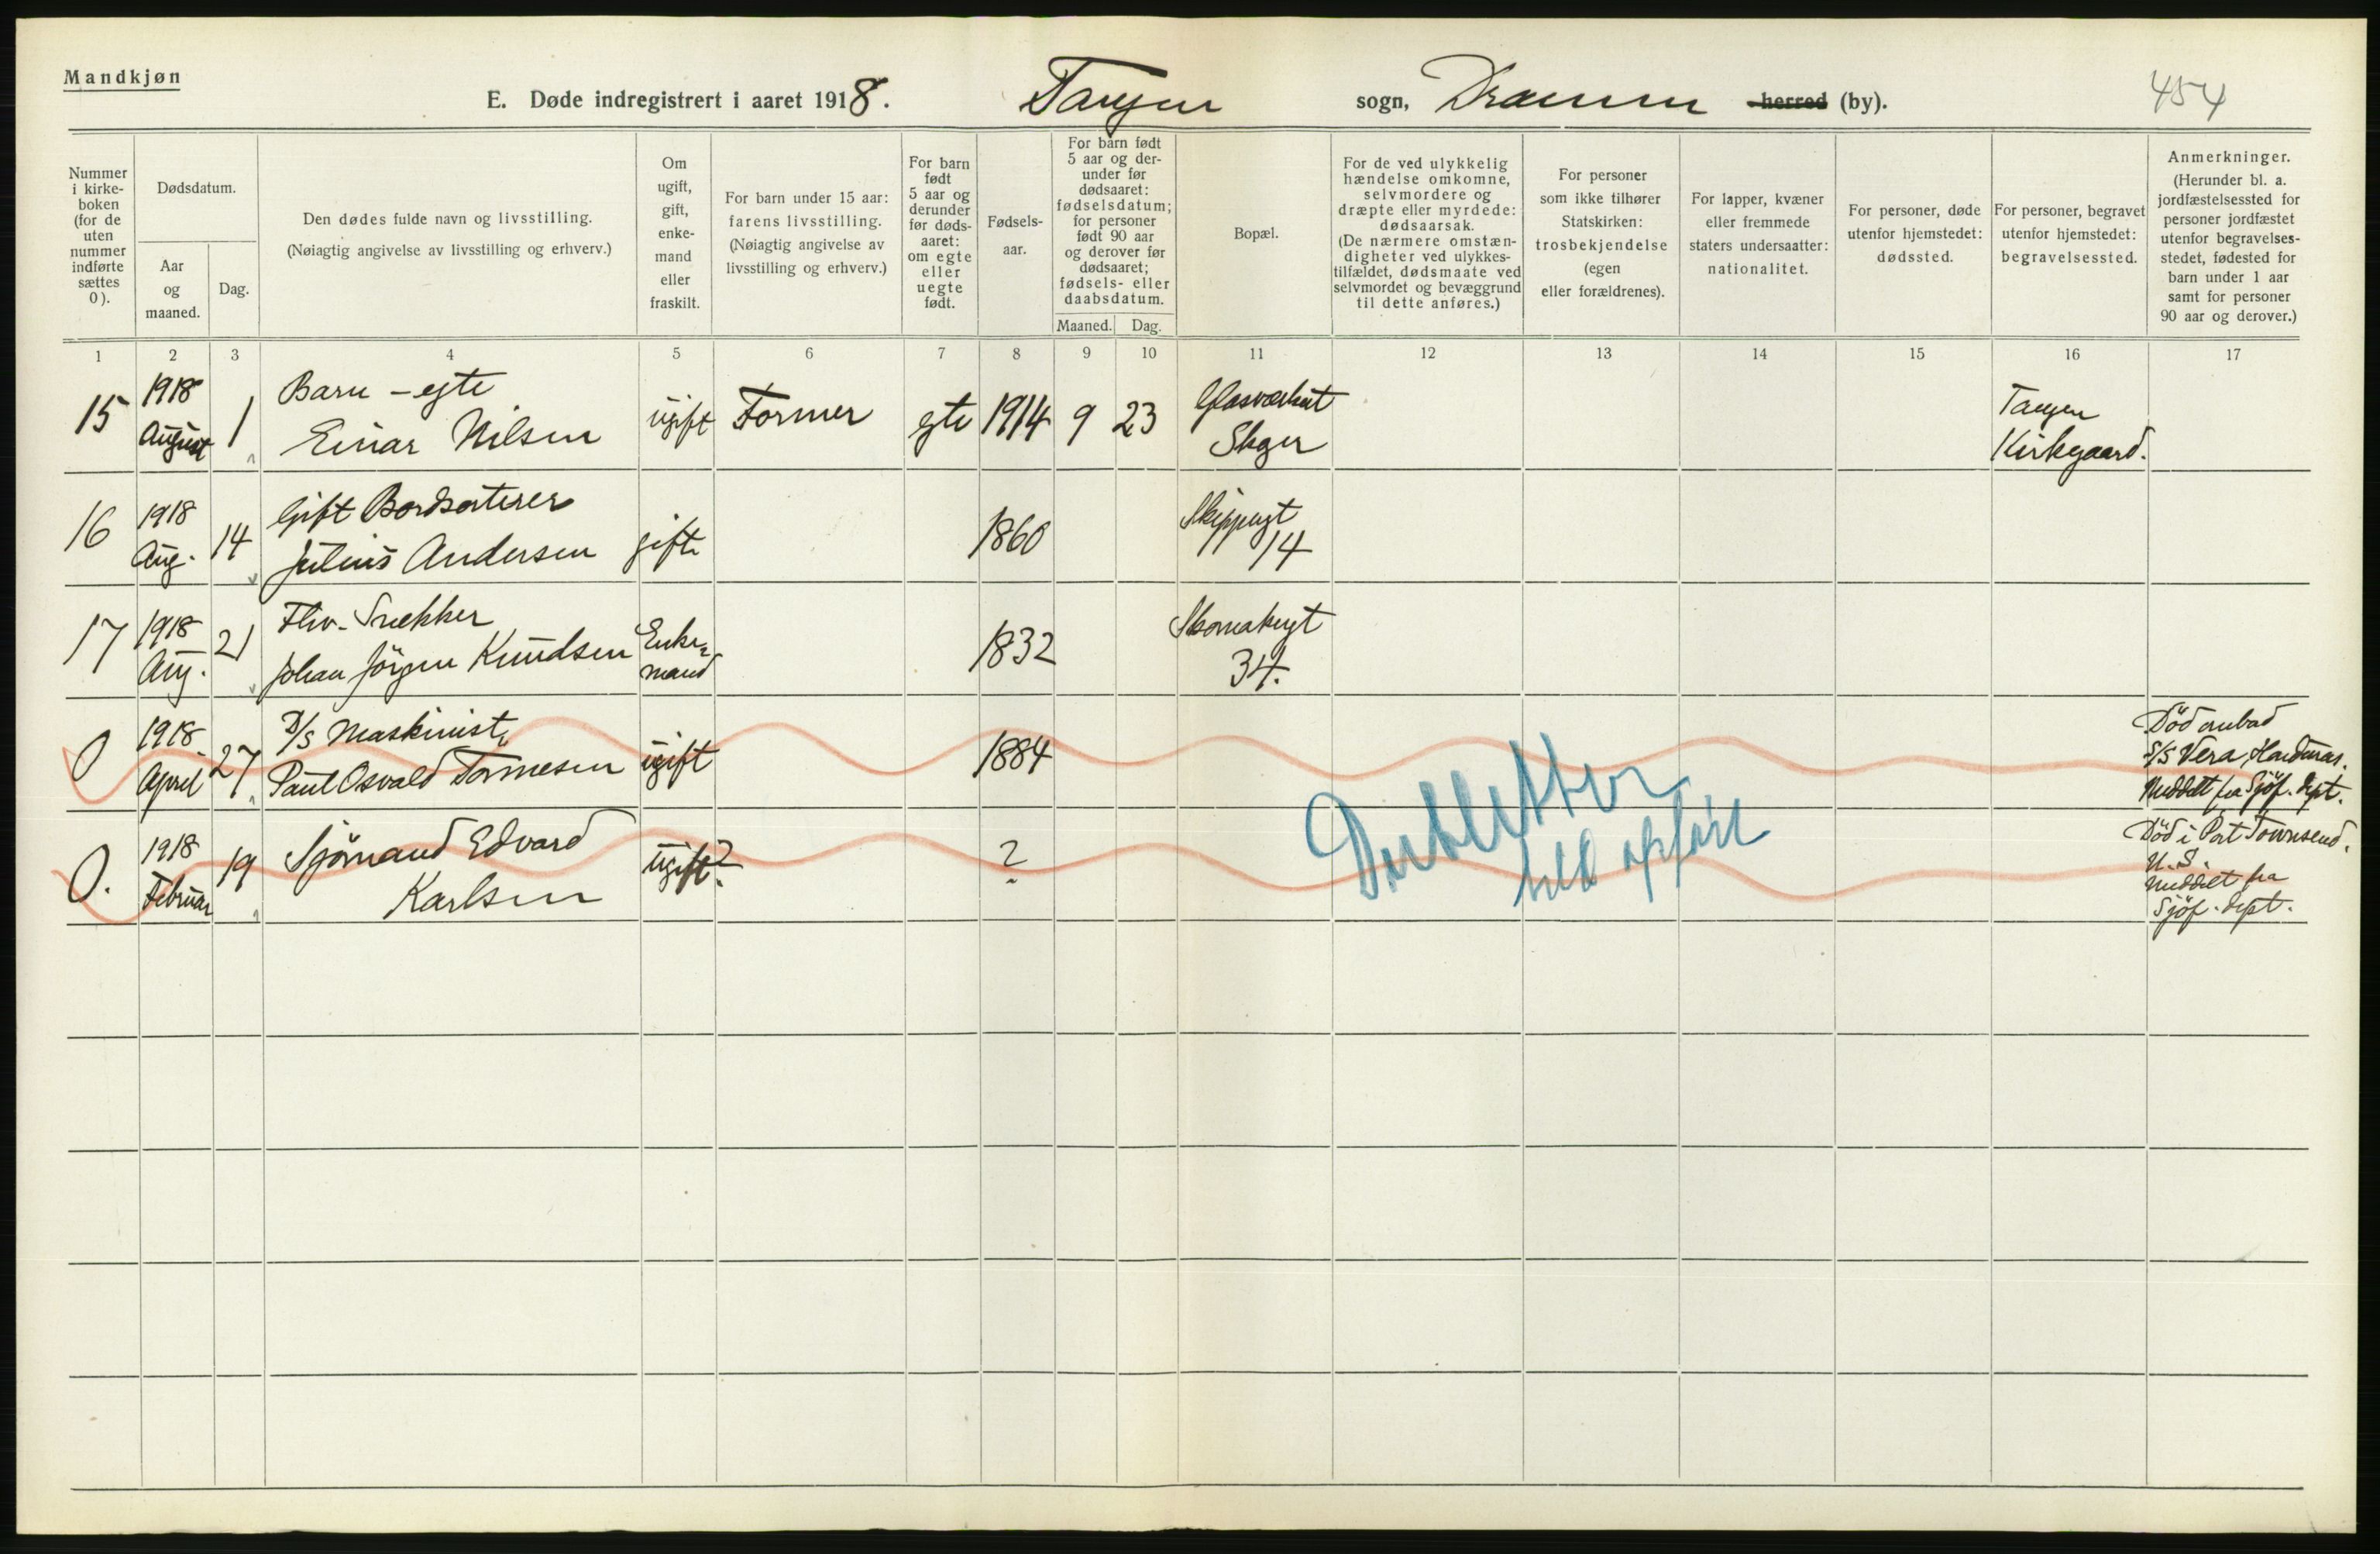 Mandkjøn
E. Døde indregistrert i aaret 1918. Tangen sogn, Drammen herred (by). 454
Nummer
i kirke-
boken
(for de
uten
nummer
indførte
sættes
0).
Dødsdatum.
Aar
og
maaned.
Dag.
Den dødes fulde navn og livsstilling.
(Nøiagtig angivelse av livsstilling og erhverv.)
Om
ugift,
gift,
enke-
mand
eller
fraskilt.
For barn under 15 aar:
farens livsstilling.
(Nøiagtig angivelse av
livsstilling og erhverv.)
For barn
født
5 aar og
derunder
før døds-
aaret:
om egte
eller
uegte
født.
Fødsels-
aar.
For barn født
5 aar og der-
under før
dødsaaret:
fødselsdatum;
for personer
født 90 aar
og derover før
dødsaaret;
fødsels- eller
daabsdatum.
Maaned. Dag.
Bopæl.
For de ved ulykkelig
hændelse omkomne,
selvmordere og
dræpte eller myrdede:
dødsaarsak.
(De nærmere omstæn-
digheter ved ulykkes-
tilfældet, dødsmaate ved
selvmordet og bevæggrund
til dette anføres.)
For personer
som ikke tilhører
Statskirken:
trosbekjendelse
(egen
eller forældrenes).
For lapper, kvæner
eller fremmede
staters undersaatter:
nationalitet.
For personer, døde
utenfor hjemstedet:
dødssted.
For personer, begravet
utenfor hjemstedet:
begravelsessted.
Anmerkninger.
(Herunder bl. a.
jordfæstelsessted for
personer jordfæstet
utenfor begravelses-
stedet, fødested for
barn under 1 aar
samt for personer
90 aar og derover.)
1 2 3 4 5 6 7 8 9 10 11 12 13 14 15 16 17
15 1918 August 1 Barn - egte
Einar Nilsen ugift Former egte 1914 9 23 Glasværket
Skger Tangen
Kirkegaard.
16 1918 Aug. 14 Gift Bordsorterer
Julius Andersen gift 1860 Skippergt
14
17 1918 Aug. 21 Fhv. Snekker
Johan Jörgen Knudsen Enke-
mand 1832 Skomakergt
34.
0 1918 April 27 D/S Maskinist,
Paul Osvald Tormesen ugift 1884 Död ombord
S/S Vera, Honduras.
Meddelt fra Sjöf. dept.
0. 1918 Februar 19 Sjömand Edvard
Karlsen ugift? ? Död i Port Townsend.
U.S.
Meddelt fra
Sjöf. dept.
Dubletter
opfört